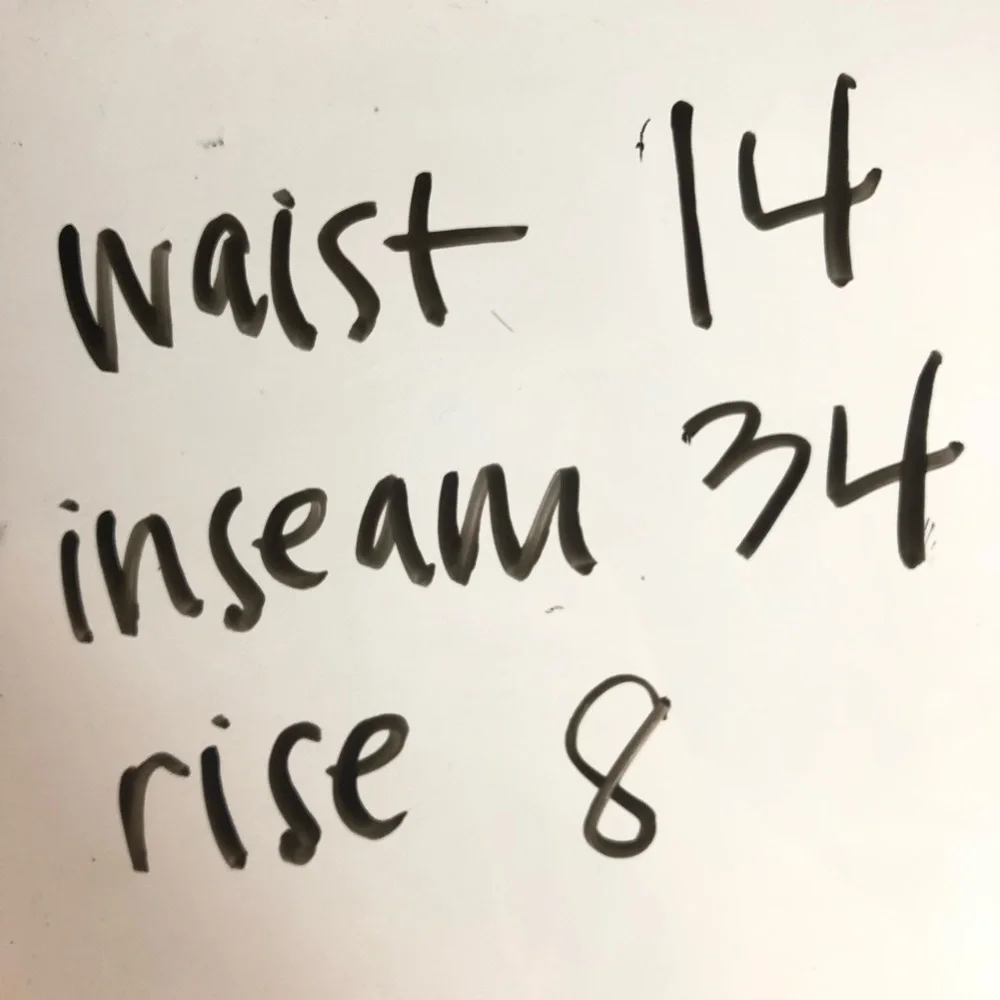 waist 14
inseam 34
rise 8